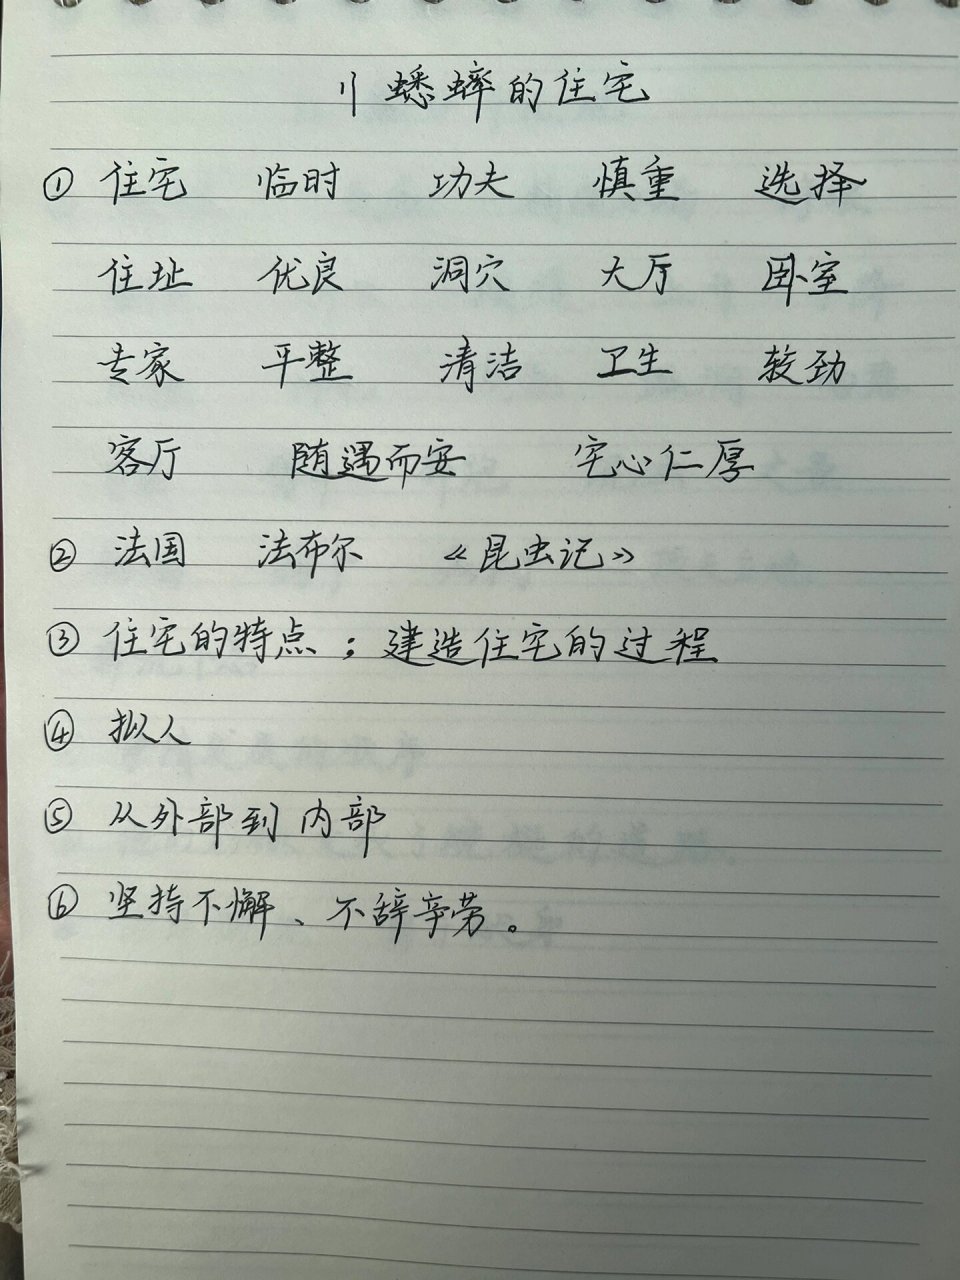 11 蟋蟀的住宅
① 住宅 临时 功夫 慎重 选择
住址 优良 洞穴 大厅 卧室
专家 平整 清洁 卫生 较劲
客厅 随遇而安 宅心仁厚
② 法国 法布尔 《昆虫记》
③ 住宅的特点；建造住宅的过程
④ 拟人
⑤ 从外部到内部
⑥ 坚持不懈、不辞辛劳。